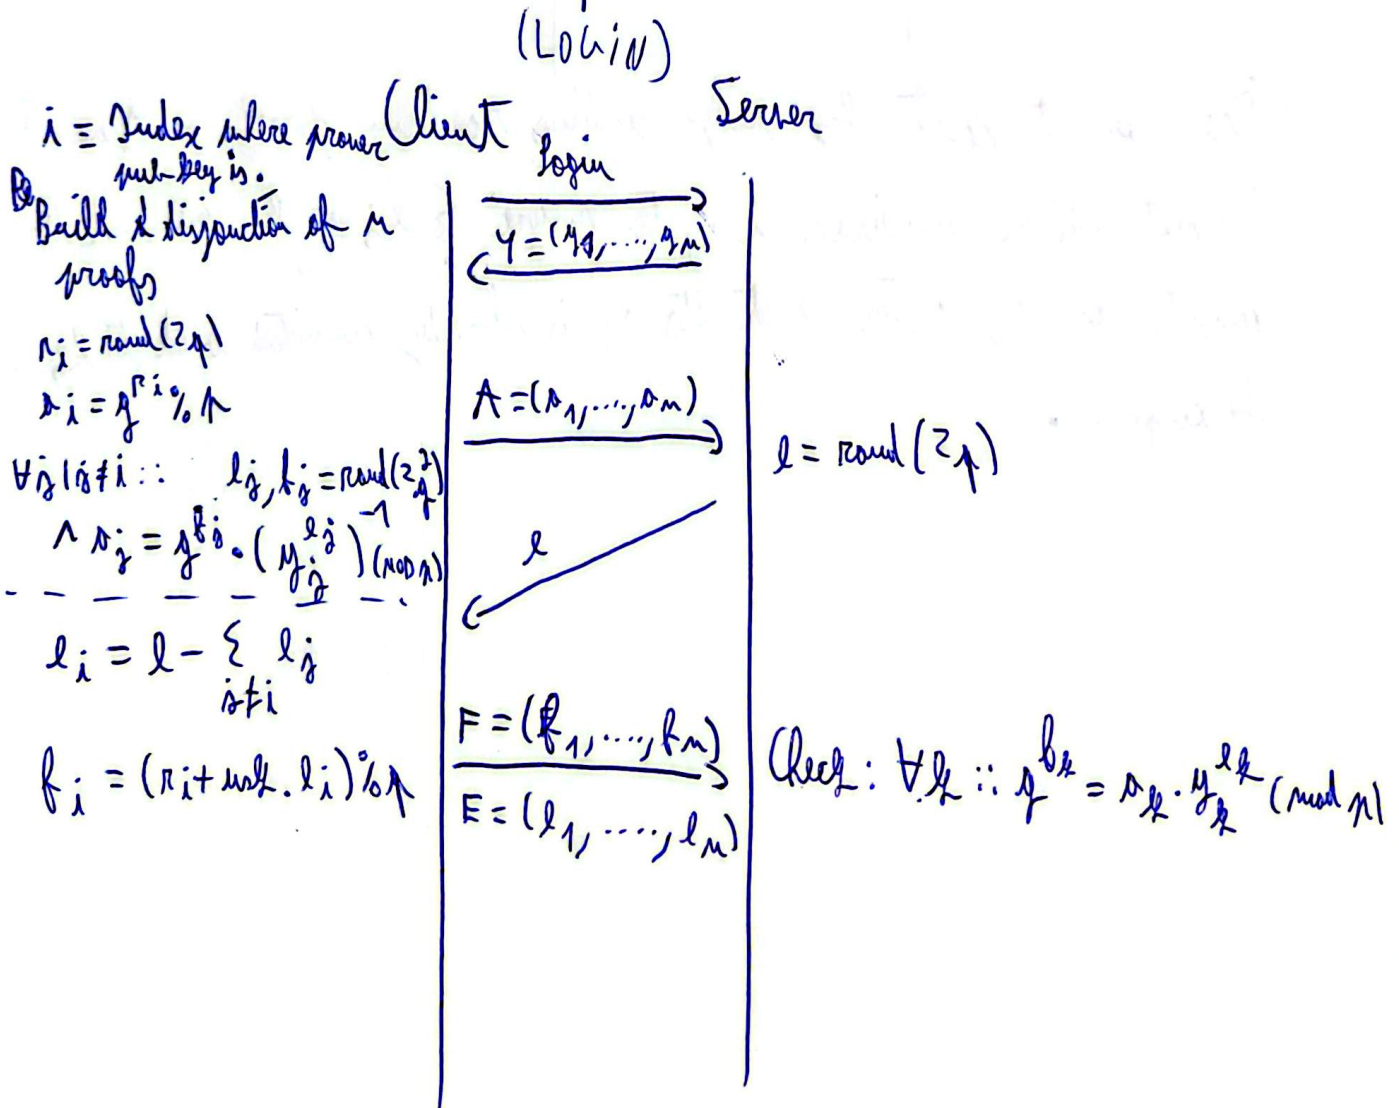 (LOGIN)
Client
Server
i ≡ Index where prover
pub-key is.
Build a disjonction of n
proofs
r_i = rand(Z_q)
a_i = g^{r_i} % p
∀j|j≠i :: e_j, f_j = rand(Z_q^2)
∧ a_j = g^{f_j} · (y_j^{e_j})^{-1} (mod p)
e_i = e - Σ_{j≠i} e_j
f_i = (r_i + usk. e_i) % q
login
Y = (y_1, ...., y_n)
A = (a_1, ...., a_n)
e
F = (f_1, ...., f_n)
E = (e_1, ...., e_n)
e = rand(Z_q)
Check: ∀k :: g^{f_k} = a_k · y_k^{e_k} (mod p)